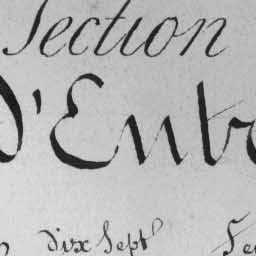 Section
d'Entr
dix Sept